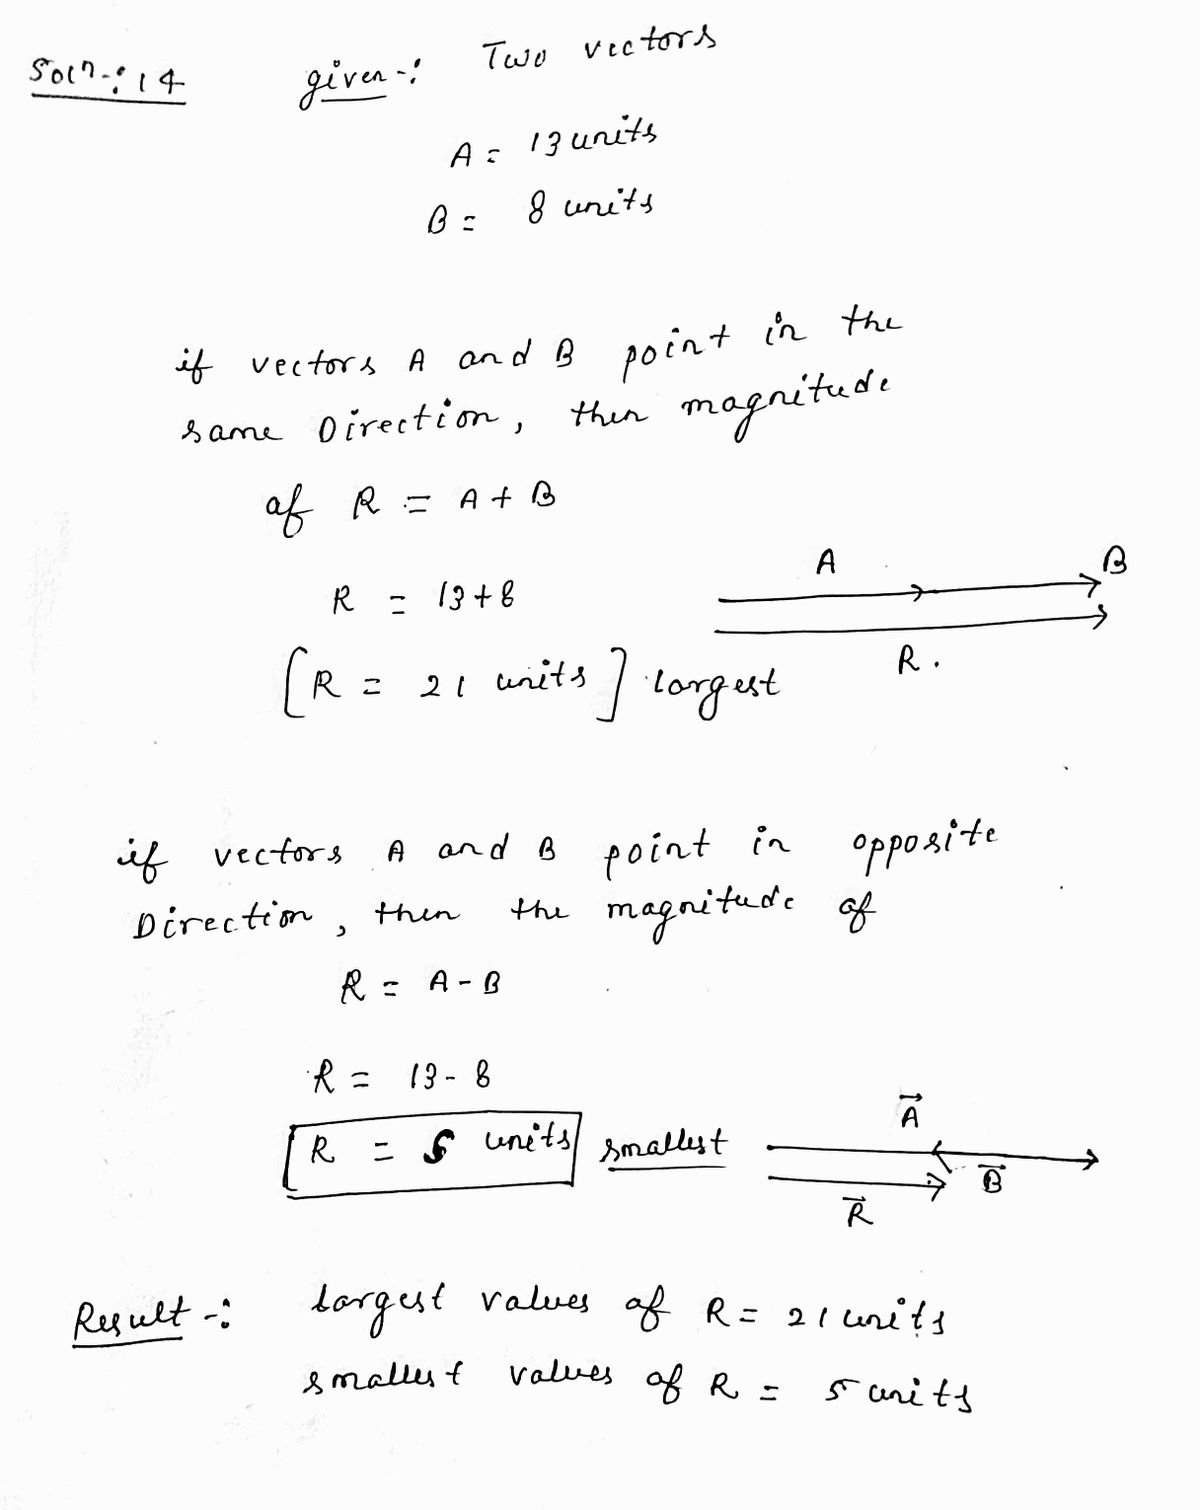 Soln-: 14 given-: Two vectors
A = 13 units
B = 8 units
if vectors A and B point in the
same Direction, then magnitude
of R = A + B
R = 13 + 8
[R = 21 units] largest
A B
R.
if vectors A and B point in opposite
Direction, then the magnitude of
R = A - B
R = 13 - 8
R = 5 units smallest
A⃗
B⃗
R⃗
Result-: largest values of R = 21 units
smallest values of R = 5 units